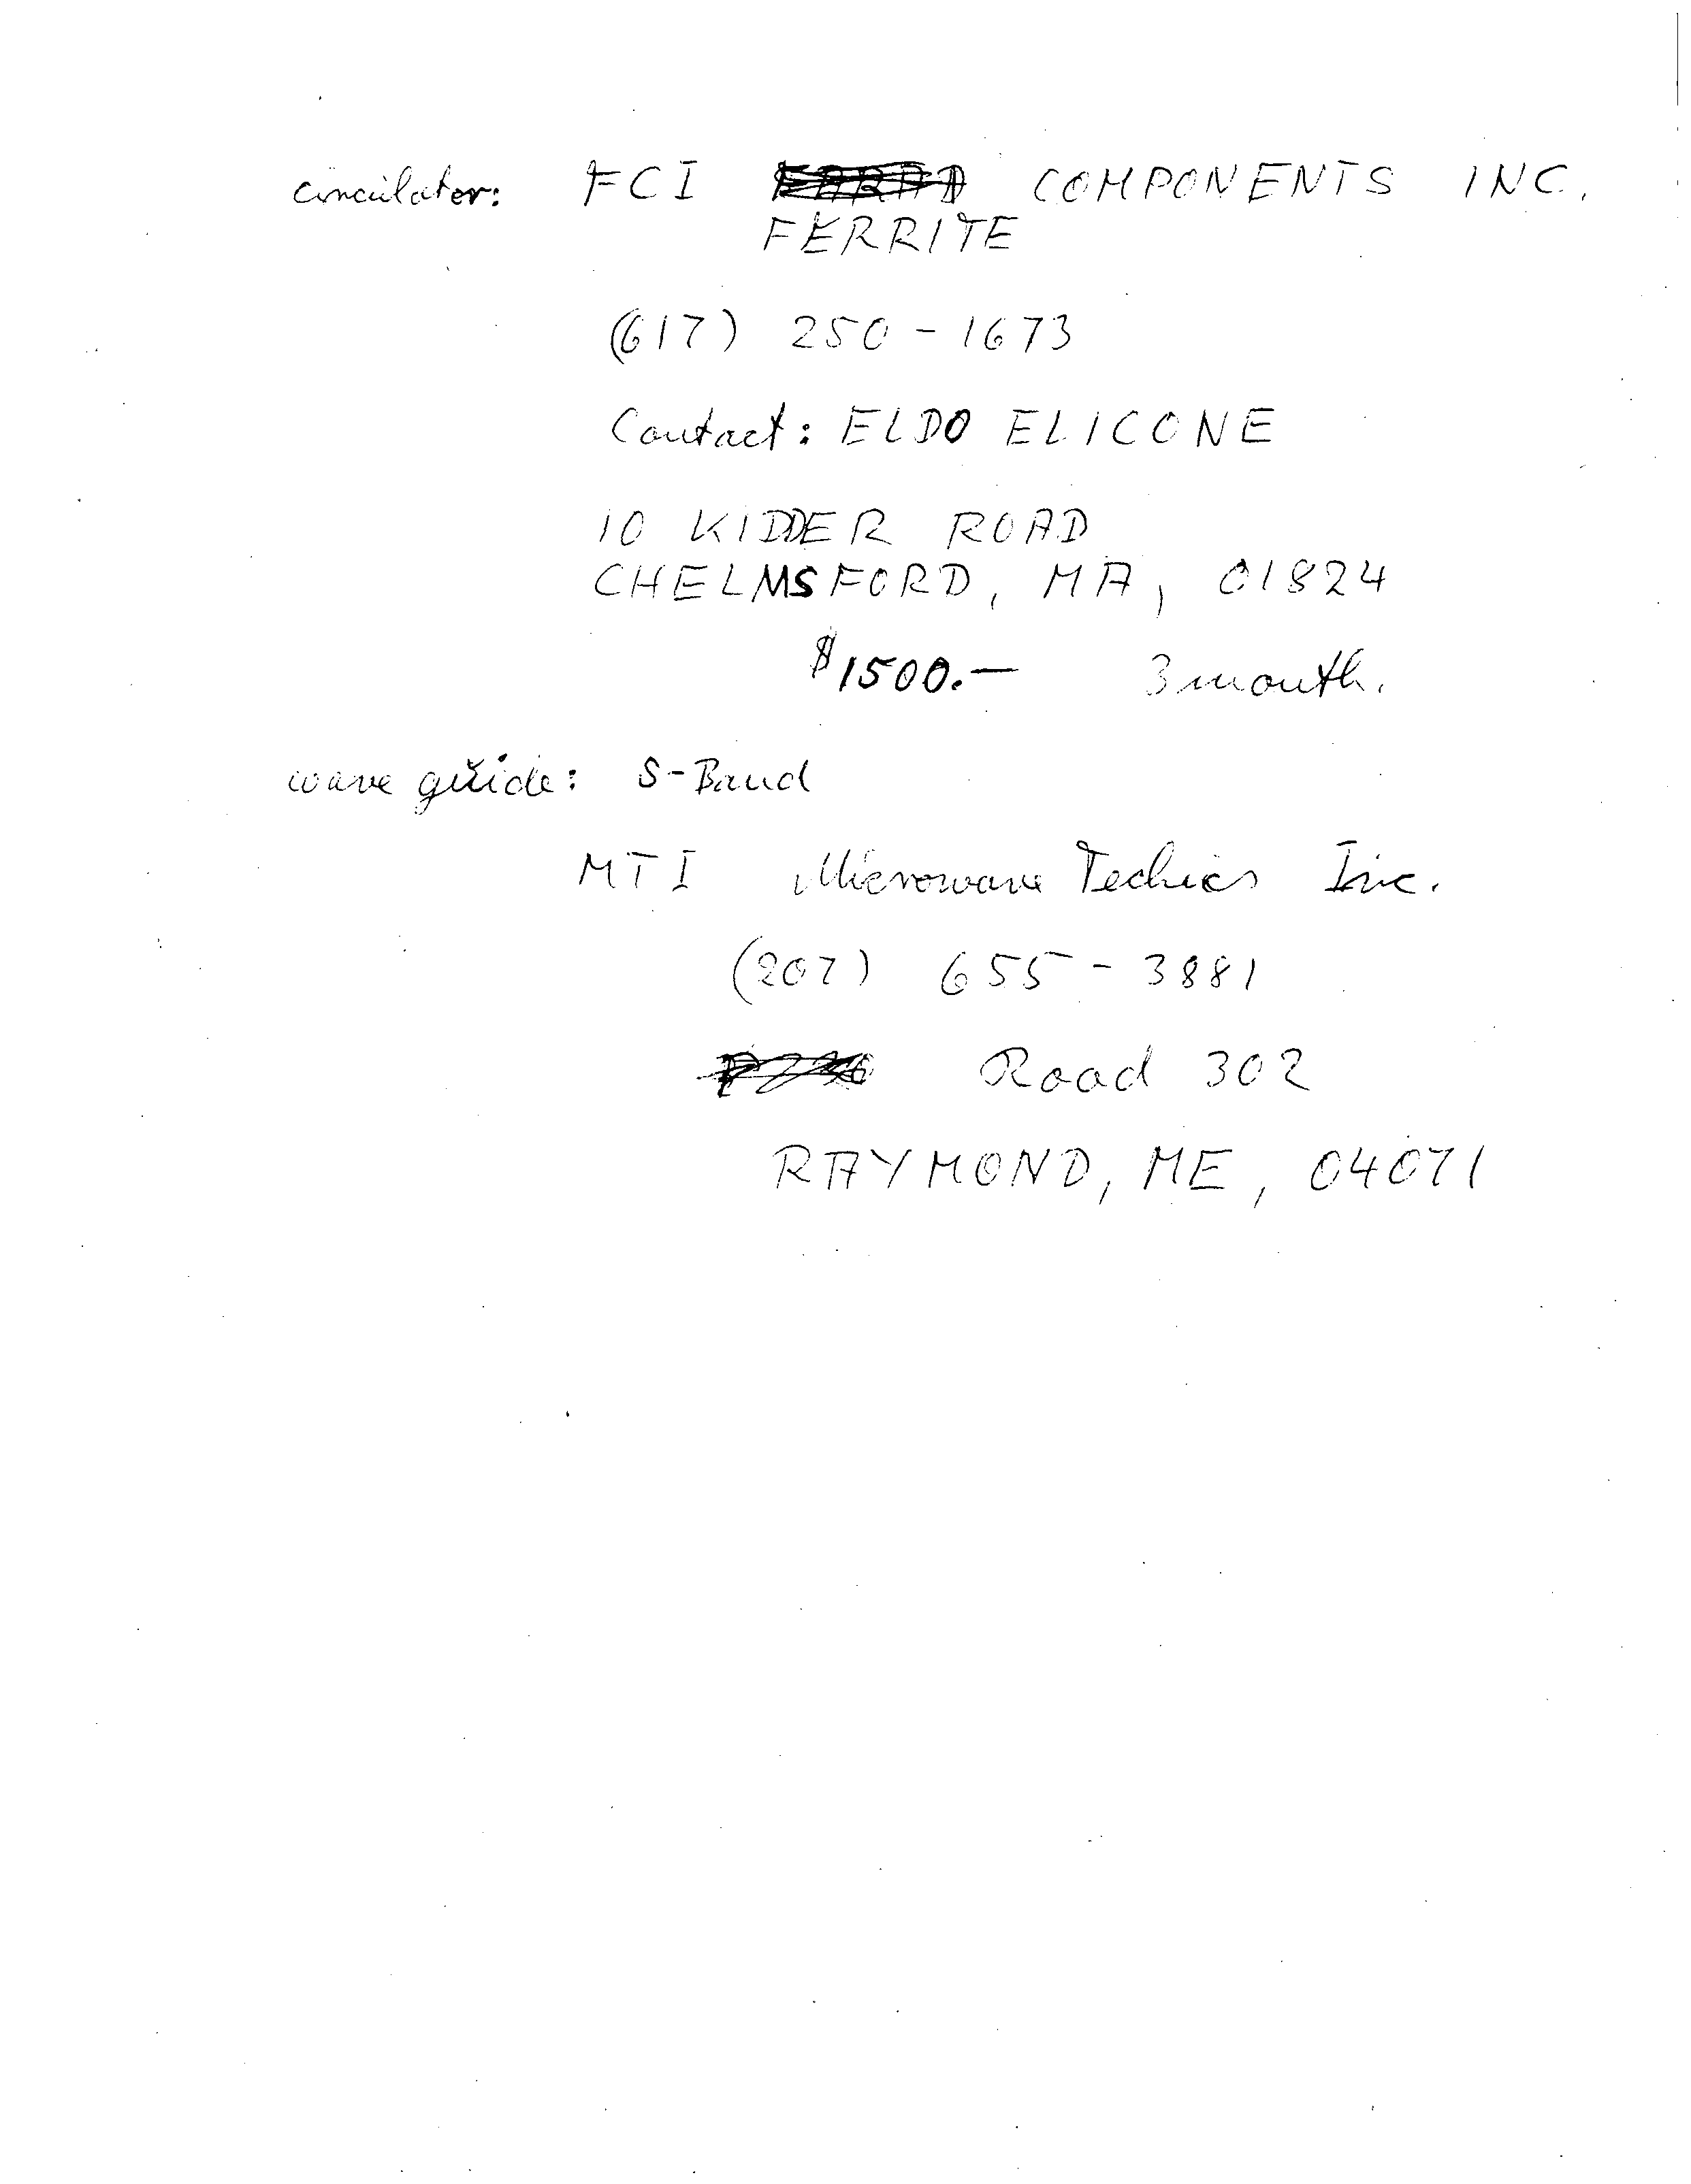 circulator: FCI COMPONENTS INC.
FERRITE
(617) 250-1673
Contact: ELDO ELICONE
10 KIDDER ROAD
CHELMSFORD, MA, 01824
$1500.— 3 month.
wave guide: S-Band
MTI Microwave Techics Inc.
(207) 655-3881
Road 302
RAYMOND, ME, 04071